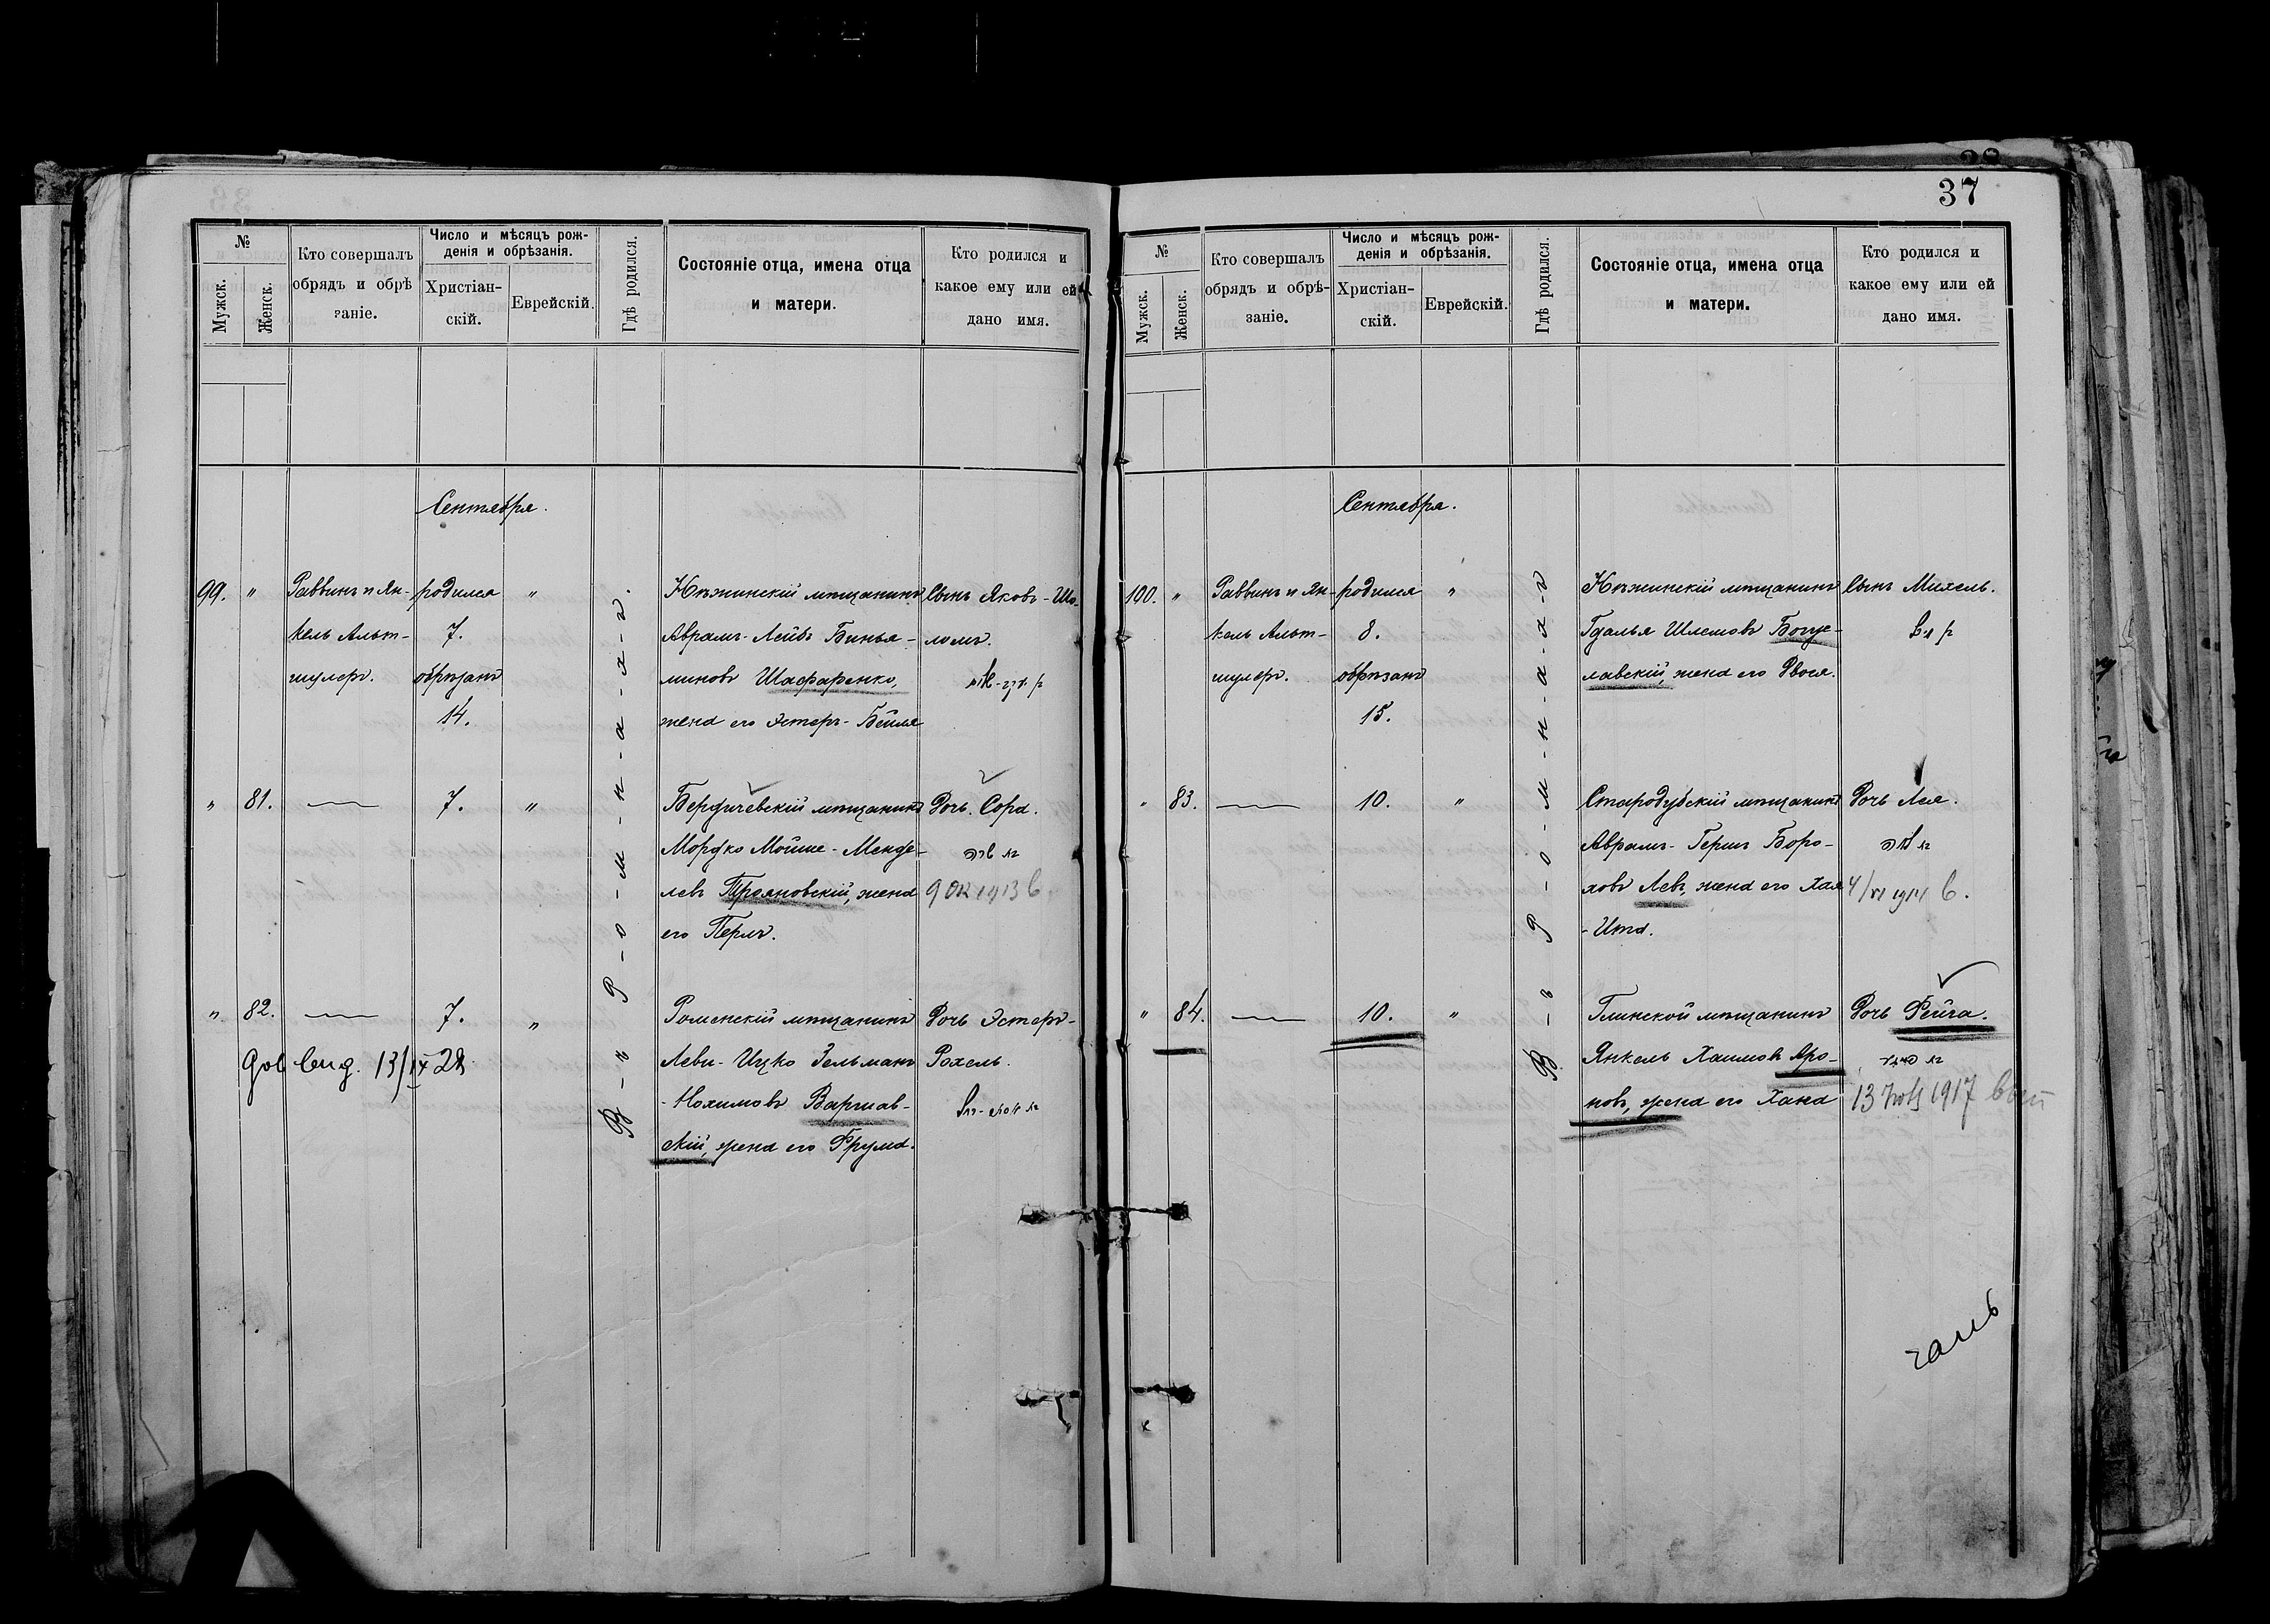 37
№
Мужск.
Женск.
Кто совершалъ
обрядъ и обрѣ
заніе.
Число и мѣсяцъ рож-
денія и обрѣзанія.
Христіан-
скій.
Еврейскій.
Гдѣ родился.
Состояніе отца, имена отца
и матери.
Кто родился и
какое ему или ей
дано имя.
Сентября.
99. "
Раввинъ и Ян-
кель Альт-
шулеръ.
родился
7.
обрѣзанъ
14.
"
В-ъ Р-о-м-н-а-х-ъ.
Нѣжинскій мѣщанинъ
Аврамъ-Лейбъ Бинья-
миновъ Шафаренко,
жена его Эстеръ-Бейля
сынъ Яковъ-Шо-
ломъ.
" 81.
7.
"
Бердичевскій мѣщанинъ
Мордко Мойше-Менде-
левъ Трояновскій, жена
его Перль.
Дочь Сора.
9 ок 1913 в
" 82.
7.
"
Роменскій мѣщанинъ
Леви-Ицко Зельманъ
-Нохимовъ Варшав-
скій, жена его Фрума.
Дочь Эстеръ-
Рохель.
13/IX 28
№
Мужск.
Женск.
Кто совершалъ
обрядъ и обрѣ-
заніе.
Число и мѣсяцъ рож-
денія и обрѣзанія.
Христіан-
скій.
Еврейскій.
Гдѣ родился.
Состояніе отца, имена отца
и матери.
Кто родился и
какое ему или ей
дано имя.
Сентября.
100. "
Раввинъ и Ян-
кель Альт-
шулеръ.
родился
8.
обрѣзанъ
15.
"
В-ъ Р-о-м-н-а-х-ъ
Нѣжинскій мѣщанинъ
Гдалья Шлемовъ Богу-
лавскій, жена его Двося.
сынъ Михель.
" 83.
10.
"
Стародубскій мѣщанинъ
Аврамъ-Гершъ Боро-
ховъ Левъ, жена его Хая
-Ита.
Дочь Лея.
4/VI 1914 в.
" 84.
10.
"
Глинской мѣщанинъ
Янкель Хаимовъ Аро-
новъ, жена его Хана
Дочь Фейга.
13 1917